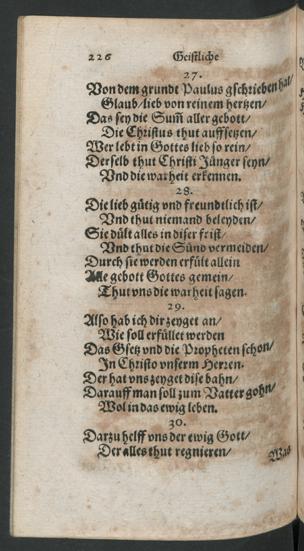 226 Geistliche
27.
Von dem grundt Paulus gschrieben hat/
Glaub/lieb von reinem hertzen/
Das sey die Sum̃ aller gebott/
Die Christus thut auffsetzen/
Wer lebt in Gottes lieb so rein/
Derselb thut Christi Jünger seyn/
Vnd die warheit erkennen.
28.
Die lieb gütig vnd freundtlich ist/
Vnd thut niemand beleyden/
Sie dült alles in diser frist/
Vnd thut die Sünd vermeiden/
Durch sie werden erfült allein
Alle gebott Gottes gemein/
Thut vns die warheit sagen.
29.
Also hab ich dir zeyget an/
Wie soll erfüllet werden
Das Gsetz vnd die Propheten schon/
In Christo vnserm Herren.
Der hat vns zeyget dise bahn/
Darauff man soll zum Vatter gohn/
Wol in das ewig leben.
30.
Darzu helff vns der ewig Gott/
Der alles thut regnieren/
Was